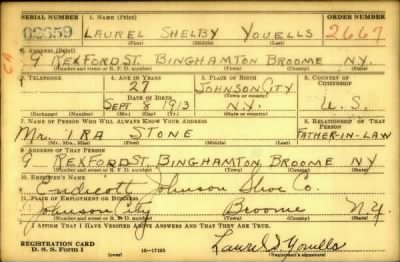 SERIAL NUMBER 1. NAME (Print) ORDER NUMBER
02659 LAUREL SHELBY YOUELLS 2667
(First) (Middle) (Last)
2. ADDRESS (Print)
9 REXFORD ST. BINGHAMTON BROOME N.Y.
(Number and street or R. F. D. number) (Town) (County) (State)
3. TELEPHONE 4. AGE IN YEARS 5. PLACE OF BIRTH 6. COUNTRY OF CITIZENSHIP
27 JOHNSON CITY
DATE OF BIRTH (Town or county)
SEPT 8 1913 N.Y. U. S.
(Exchange) (Number) (Mo.) (Day) (Yr.) (State or country)
7. NAME OF PERSON WHO WILL ALWAYS KNOW YOUR ADDRESS 8. RELATIONSHIP OF THAT PERSON
Mr. IRA STONE FATHER-IN-LAW
(Mr., Mrs., Miss) (First) (Middle) (Last)
9. ADDRESS OF THAT PERSON
9 REXFORD ST. BINGHAMTON BROOME NY
(Number and street or R. F. D. number) (Town) (County) (State)
10. EMPLOYER'S NAME
Endicott Johnson Shoe Co.
11. PLACE OF EMPLOYMENT OR BUSINESS
Johnson City Broome N.Y.
(Number and street or R. F. D. number) (Town) (County) (State)
I AFFIRM THAT I HAVE VERIFIED ABOVE ANSWERS AND THAT THEY ARE TRUE.
REGISTRATION CARD
D. S. S. Form 1 16-17105 Laurel S. Youells
(Registrant's signature)